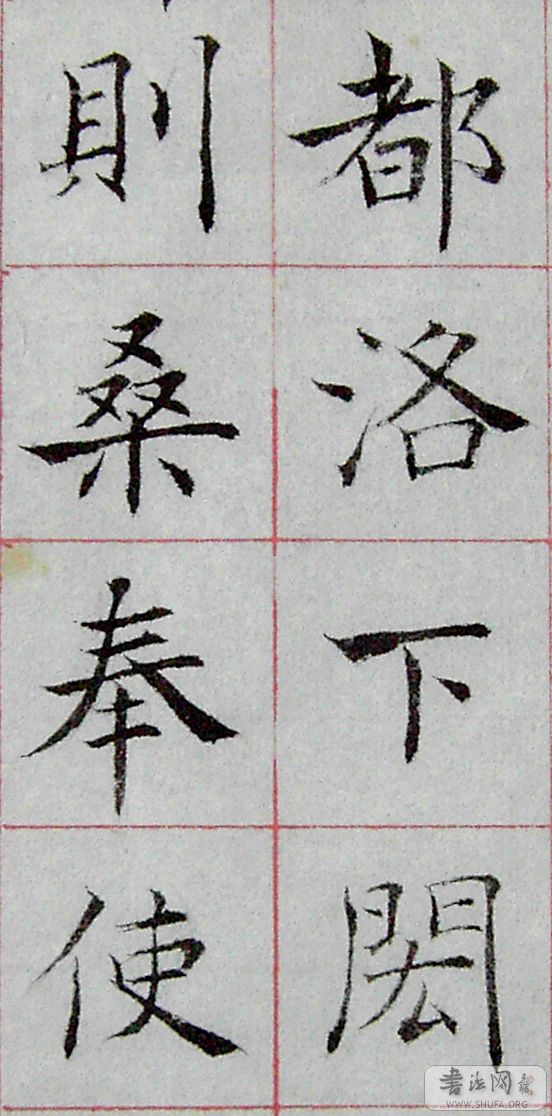 都洛下閎
則桑奉使
書法网
WWW.SHUFA.ORG